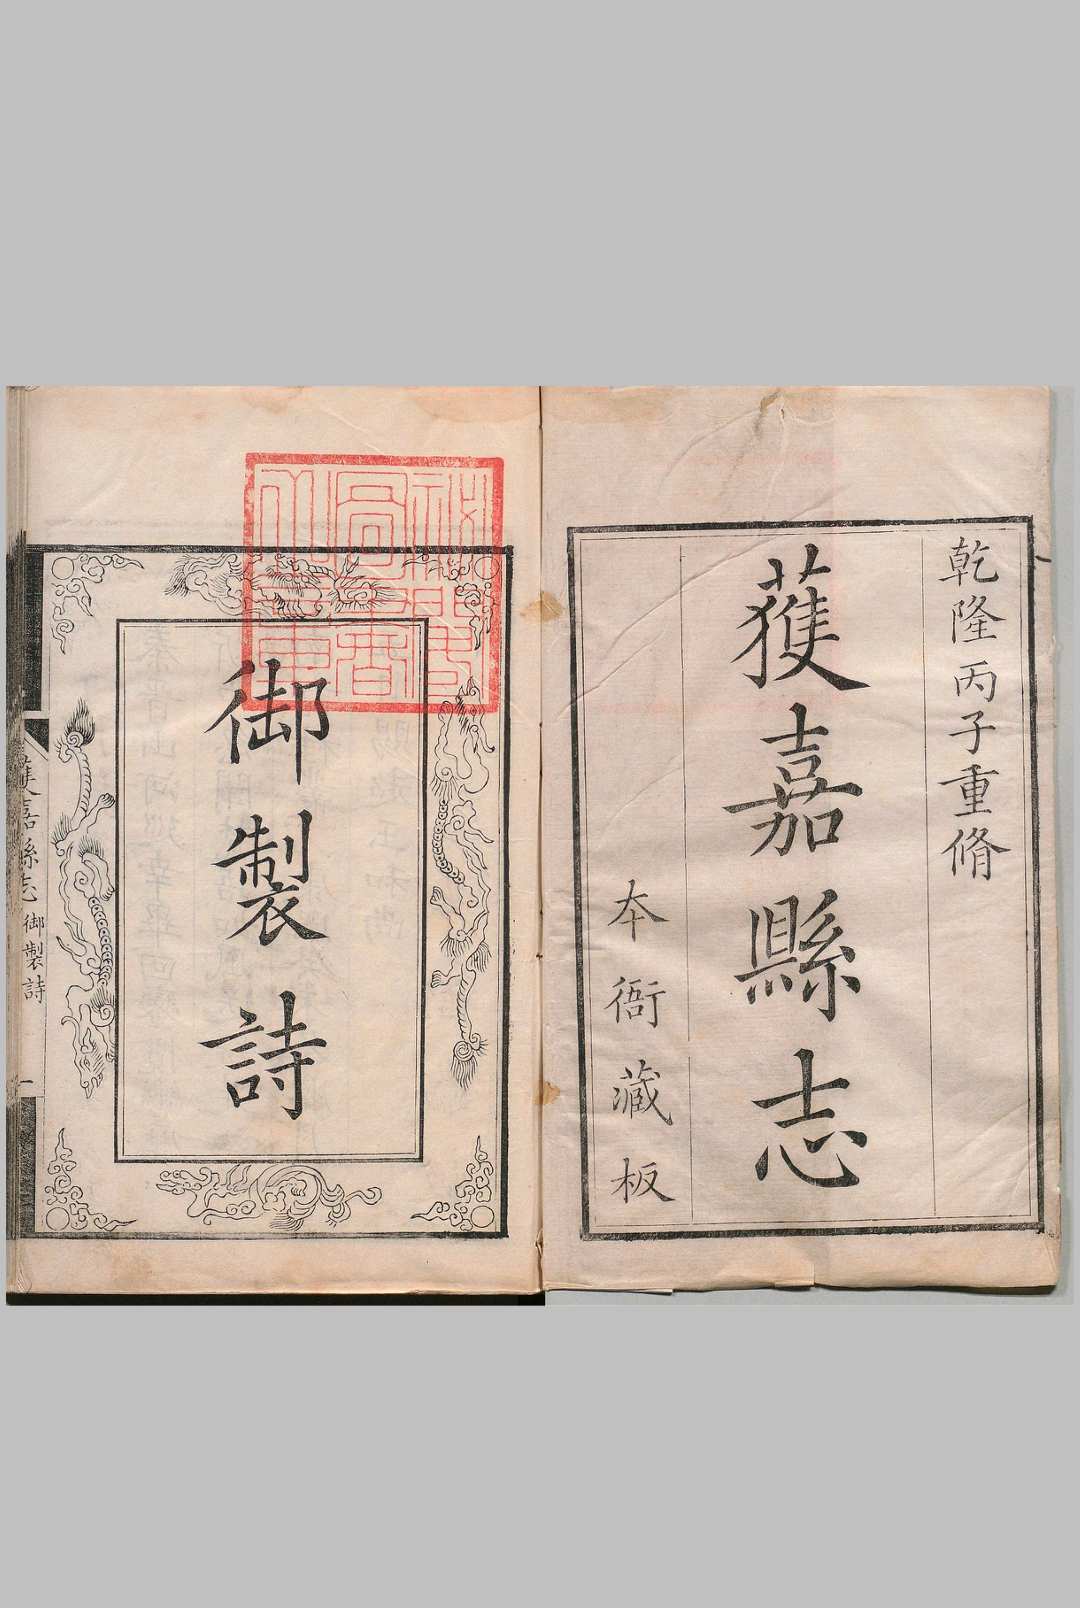 乾隆丙子重脩
獲嘉縣志
本衙藏板
御製詩
獲嘉縣志 御製詩 一